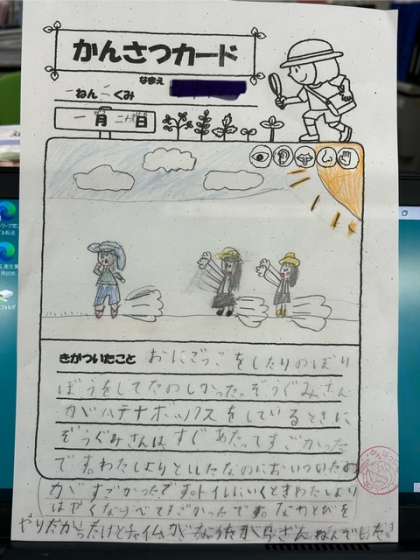 かんさつカード
なまえ
一ねん二くみ
一月二十八日
きがついたこと おにごっこをしたりのぼり
ぼうをしてたのしかった。ぞうぐみさん
がハテナボックスをしているときに
ぞうぐみさんは、すじあたってすごかった
です。わたしよりとししたなのにおいついたの
がすごかったです。トイレにいくときわたしより
はやくならべてすごかったです。なわとびを
やりたかったけどチャイムがなったからざんねんでした。